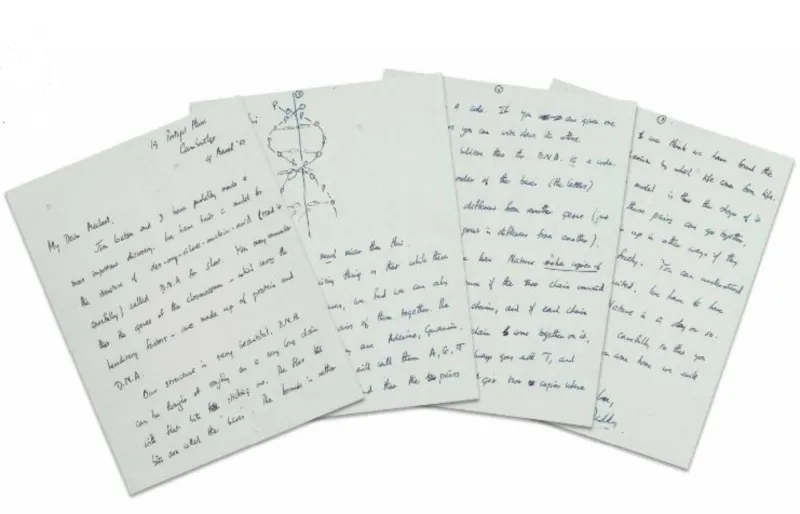 19 Portugal Place
Cambridge
19 March '53
My Dear Michael,
Jim Watson and I have probably made a
most important discovery. We have built a model for
the structure of des-oxy-ribose-nucleic-acid (read it
carefully) called D.N.A. for short. You may remember
that the genes of the chromosomes – which carry the
hereditary factors – are made up of protein and
D.N.A.
Our structure is very beautiful. D.N.A.
can be thought of roughly as a very long chain
with flat bits sticking out. The flat
bits are called the bases. The formula is rather
P
P
P
P
much nicer than this.
exciting thing is that while there
bases, we find we can only
pairs of them together. The
are Adenine, Guanine,
will call them A, G, T
find that the pairs
a code. If you are given one
you can write down the other.
believe that the D.N.A. is a code.
order of the bases (the letters)
different from another gene (just
is different from another).
how Nature makes copies of
if the two chains unwind
chains, and if each chain
chain come together on it,
always goes with T, and
get two copies where
we think we have found the
by which life comes from life.
model is that the shape is
these pairs can go together,
up in other ways if they
freely. You can understand
excited. We have to have
in a day or so.
carefully so that you
come home we will
love,
Daddy